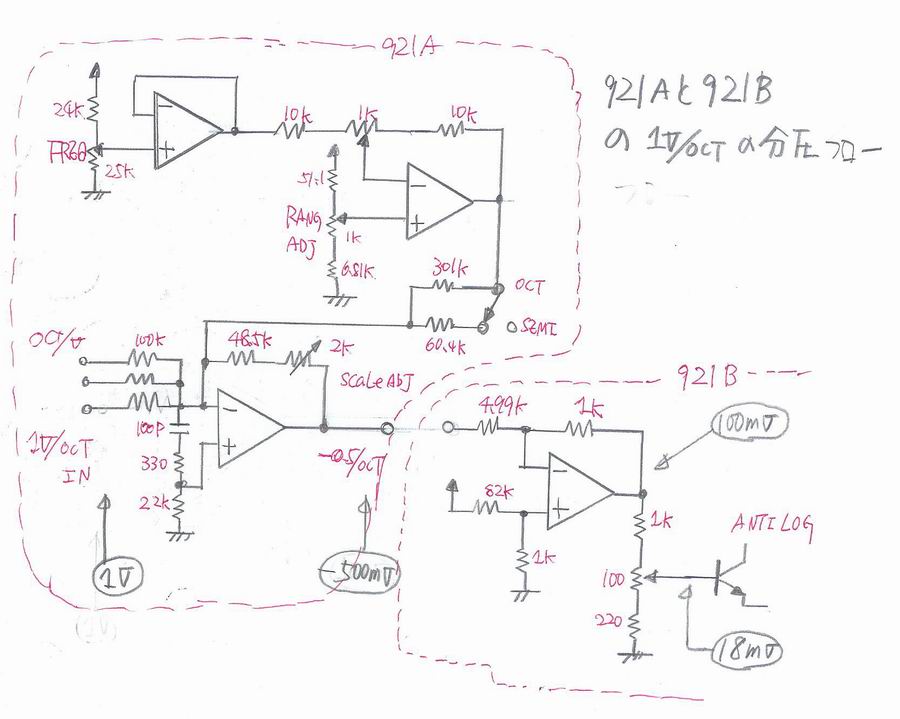 921A
921Aと921B
の 1V/OCT の分圧フロー
フロー
24K
FREQ
25K
10k
1K
10k
51.1
RANG
ADJ
1K
6.81K
301k
OCT
SEMI
60.4k
OCT/V
100k
48.5k
2K
SCALE ADJ
100P
330
2.2k
1V/OCT
IN
-0.5/OCT
1V
-500mV
921B
4.99k
1k
100mV
82k
1k
1k
100
220
ANTILOG
18mV